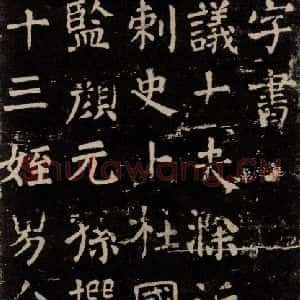 字書
議大夫滁
刺史上柱國
監顏元孫撰
十三姪男
shufawang.cn